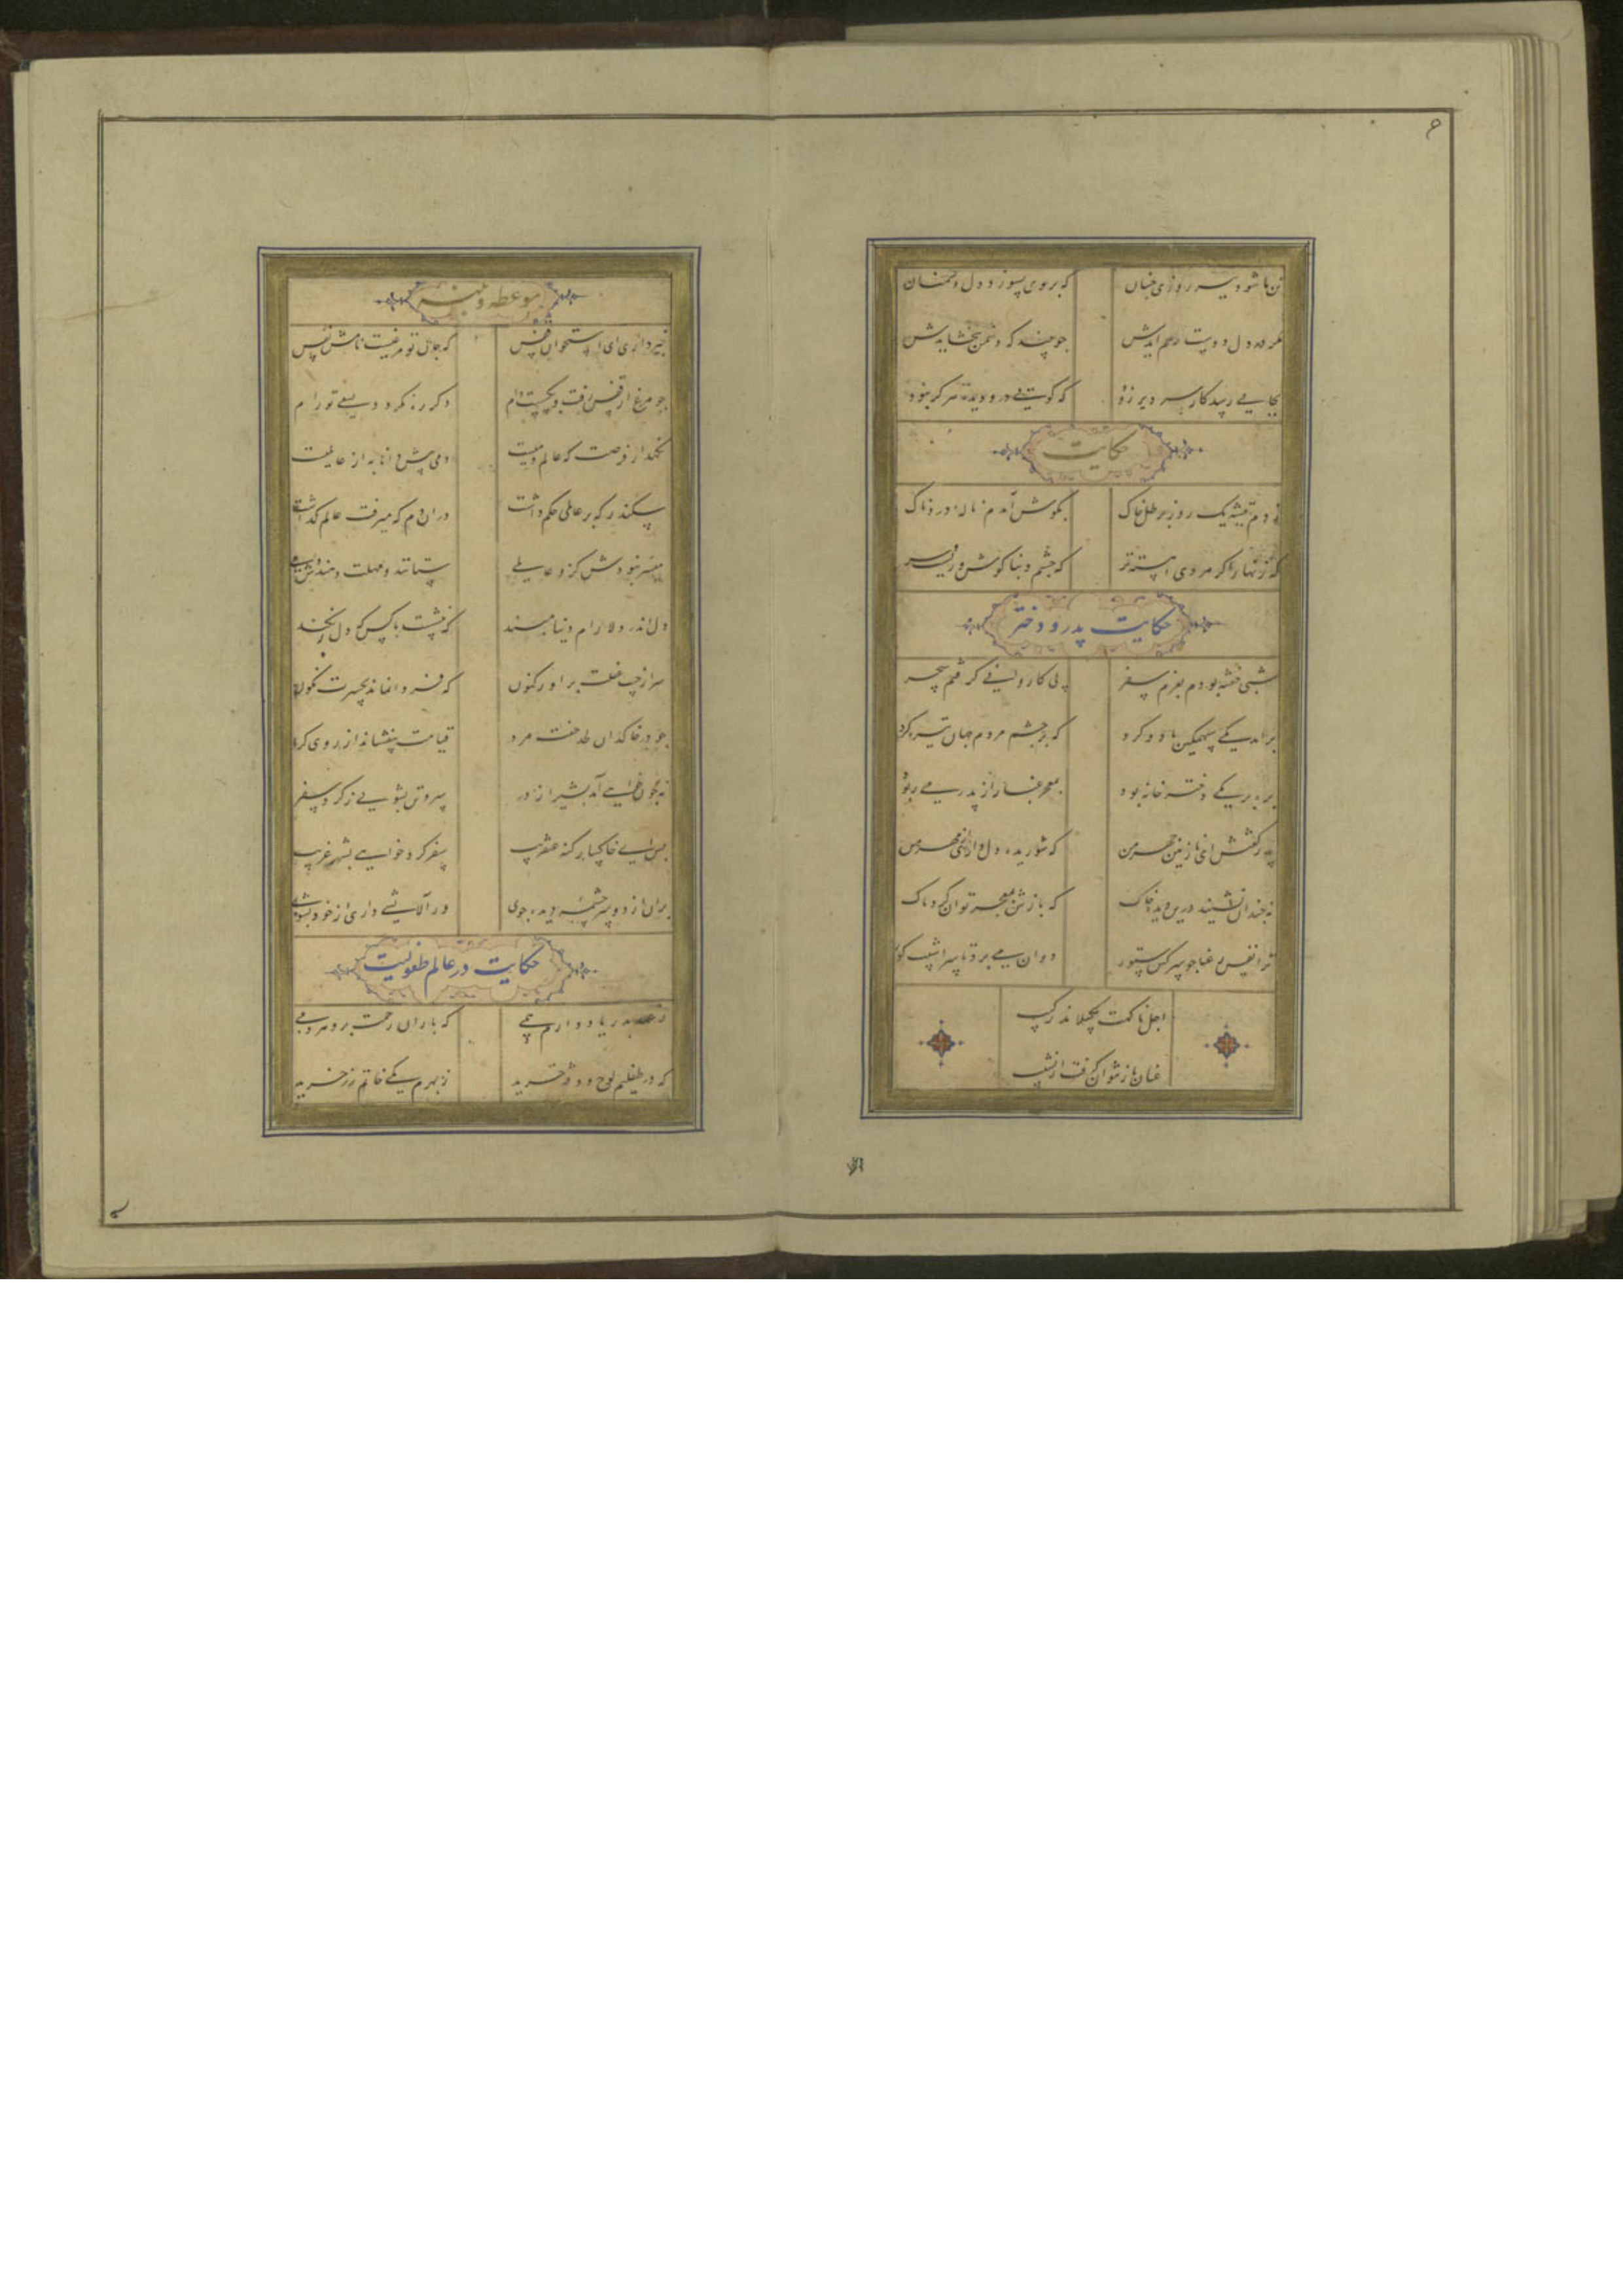 تن ما شود نیز روزی چنان
که بر وی بسوزد دل دشمنان
مگر در دل دوست رحم آیدش
چو بیند که دشمن ببخشایدش
بجایی رسد کار سر دیر زود
که گویی درو دیده هرگز نبود
حکایت
زدم تیشه یک روز بر تل خاک
بگوش آمدم ناله دردناک
که زنهار اگر مردی آهسته تر
که چشم و بنا گوش و رویست و سر
حکایت پدر و دختر
شبی خفته بودم بعزم سفر
پی کاروانی گرفتم سحر
برآمد یکی سهمگین باد و گرد
که بر چشم مردم جهان تیره کرد
بره بر یکی دختر خانه بود
بمعجر غبار از پدر می ربود
پدر گفتش ای نازنین چهر من
که شوریده دل داری از مهر من
نه چندان نشیند درین دیده خاک
که بازش بمعجر توان کرد پاک
ترا نفس رعنا چو سرکش ستور
دوان می برد تا سراشیب گور
اجل ناگهت بگسلاند رکیب
عنان باز نتوان گرفت از نشیب
موعظه و تنبیه
خبر داری ای استخوان قفس
که جان تو مرغیست نامش نفس
چو مرغ از قفس رفت و بگسست دام
دگر ره نگردد بسعی تو رام
نگهدار فرصت که عالم دمیست
دمی پیش دانا به از عالمیست
سکندر که بر عالمی حکم داشت
در آن دم که میرفت عالم گذاشت
میسر نبودش کزو عالمی
ستانند و مهلت دهندش دمی
دل اندر دلارام دنیا مبند
که ننشست با کس که دل بر نکند
سر از جیب غفلت برآور کنون
که فردا نماند بحسرت نگون
تو در خاکدان خفت مرد
قیامت بیفشاند از روی گرد
نه چون خواهی آمد بشیراز در
سر و تن بشویی ز گرد سفر
پس ای خاکسار گنه عنقریب
سفر کرد خواهی بشهر غریب
بران از دو سرچشمه دیده جوی
ور آلایشی داری از خود بشوی
حکایت در عالم طفولیت
ز عهد پدر یاد دارم همی
که باران رحمت برو هر دمی
که در طفلیم لوح و دفتر خرید
ز بهرم یکی خاتم زر خرید